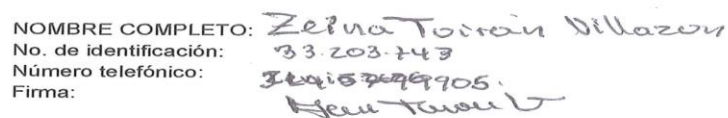 NOMBRE COMPLETO: Zeina Toirán Villazon
No. de identificación: 33.203.743
Número telefónico:
Firma: